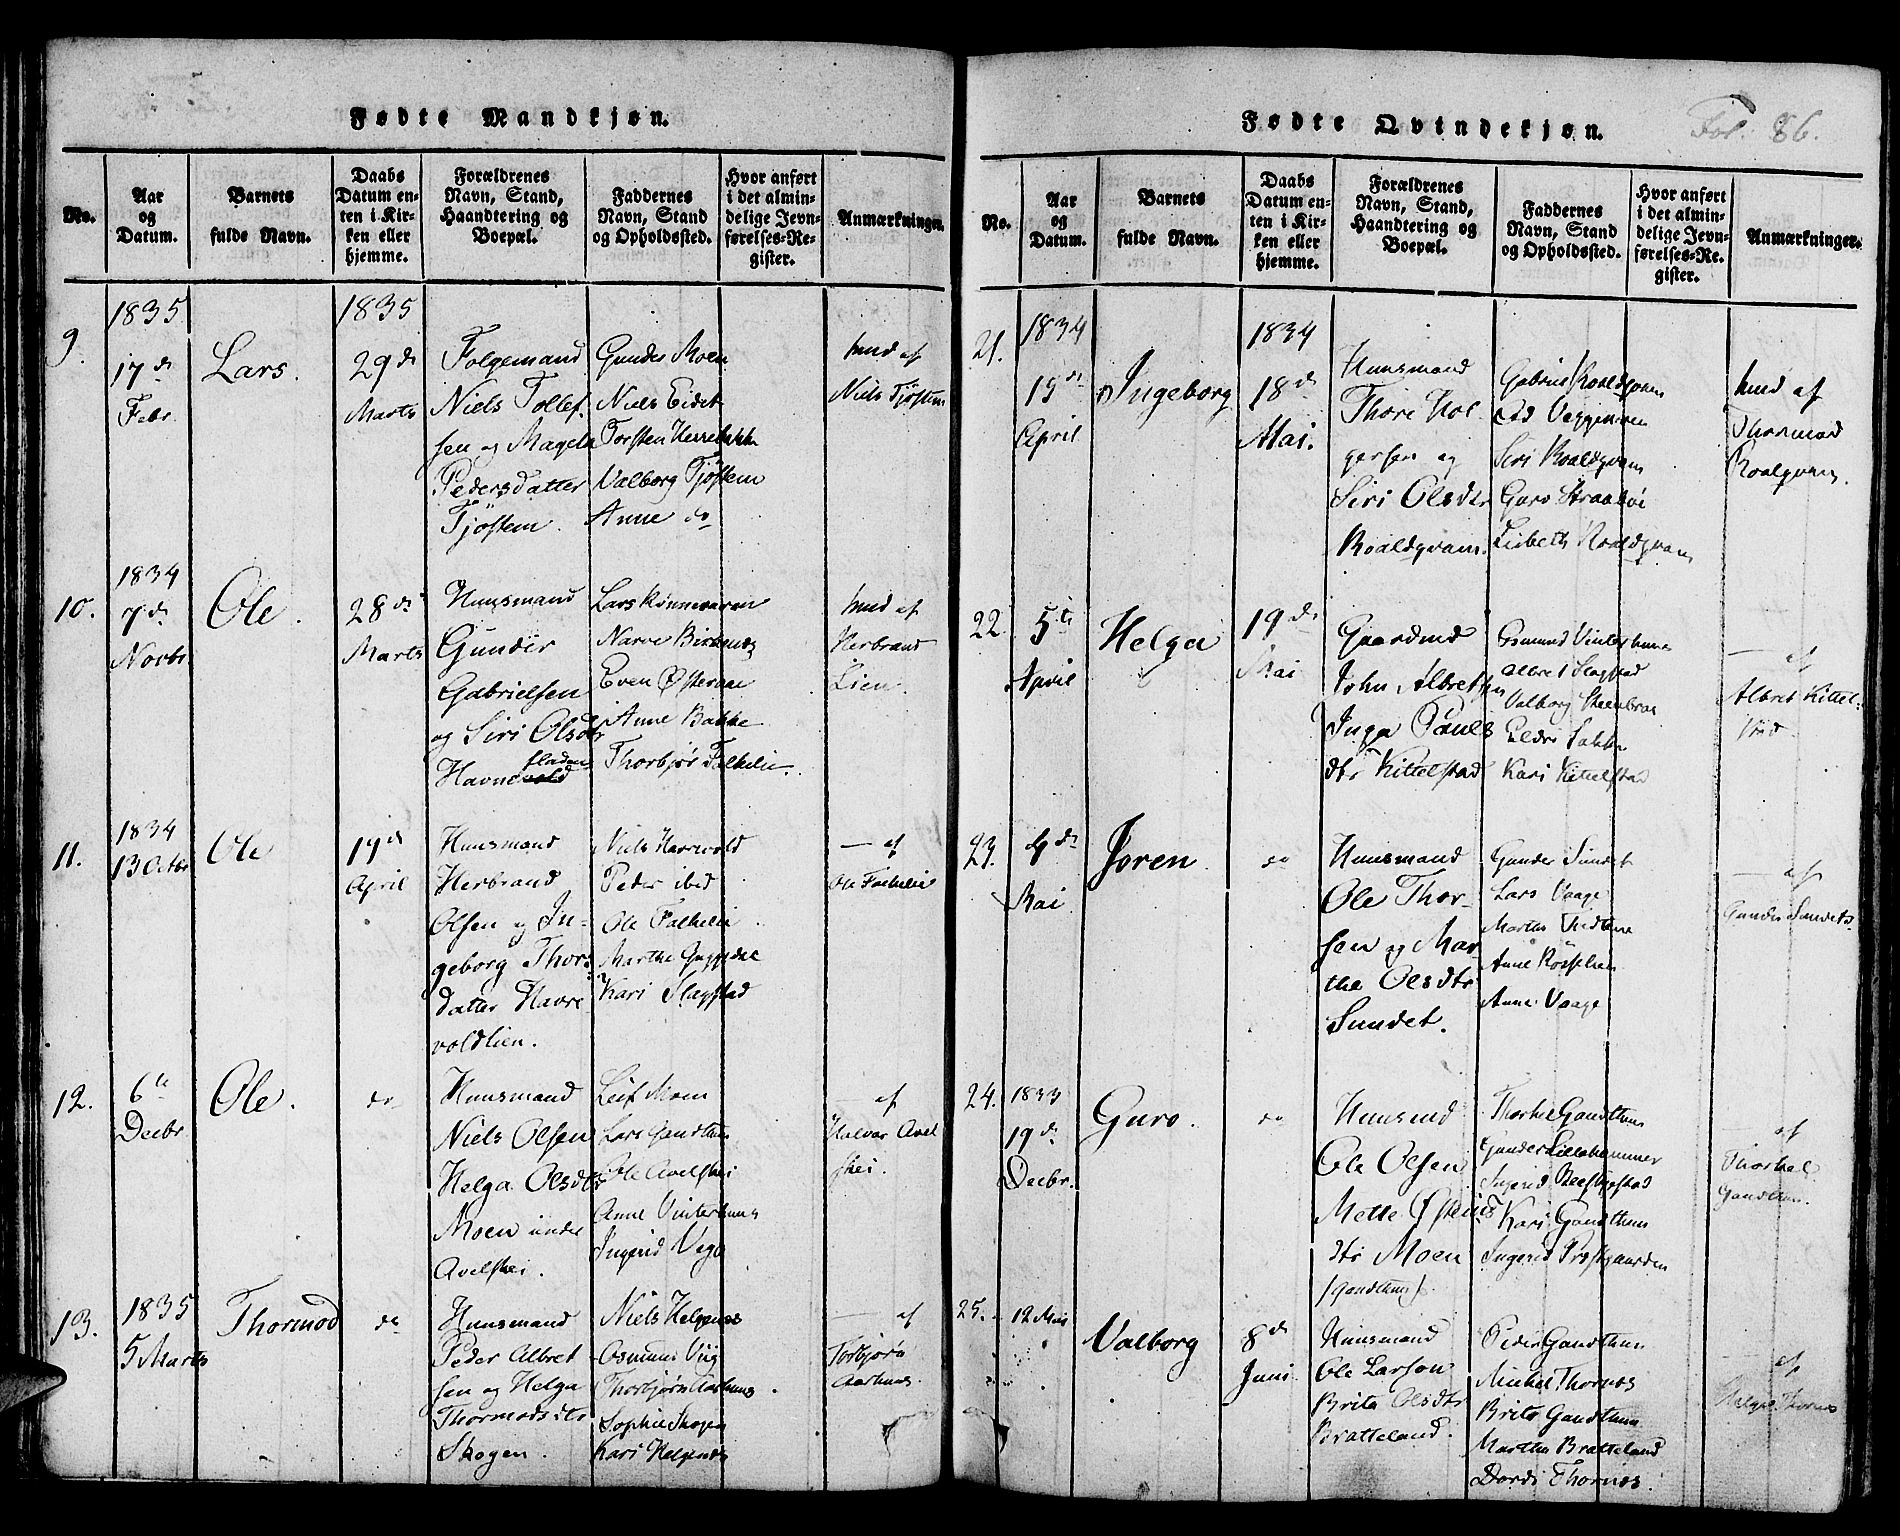 Fødte Mandkjøn.
No.
Aar
og
Datum.
Barnets
fulde Navn.
Daabs
Datum en-
ten i Kir-
ken eller
hjemme.
Forældrenes
Navn, Stand,
Haandtering og
Boepæl.
Faddernes
Navn, Stand
og Opholdssted.
Hvor anført
i det almin-
delige Jevn-
førelses-Re-
gister.
Anmærkninger.
9.
1835
17de
Febr.
Lars.
1835
29de
Marts
Folgemand
Niels Tollef-
sen og Magela
Pedersdatter
Tjøstem.
Gunder Moen
Niels Eidet
Torsten Herrebakke
Valborg Tjøstem
Anne do
hmd af
Niels Tjøstem
10.
1834
7de
Novbr
Ole.
28de
Marts
Huusmand
Gunder
Gabrielsen
og Siri Olsdtr
fladen
Havnevold
Lars Rønnevaren
Narve Birkenes
Even Østeraae
Anne Bakke
Thorbjør Falkelie.
hmd af
Herbrand
Lien.
11.
1834
13 Octbr
Ole
19de
April
Huusmand
Herbrand
Olsen og In-
geborg Thors
datter Havre
voldlien.
Niels Havrevold
Peder ibid
Ole Falkelie
Marthe
Kari Slagstad
— af
Ole Falkelie
12.
6te
Decbr
Ole.
do
Huusmand
Niels Olsen
Helga Olsdtr
Moen under
Avelskei.
Leif Moen
Lars Gandthun
Ole Avelskei
Anne Vinterhuus
Ingerid Vega
af
Halvor Avel
skei.
13.
1835
5 Marts
Thormod
do
Huusmand
Peder Albret
sen og Helga
Thormodsdtr
Skogen.
Niels Helgenæs
Osmund Viig
Thorbjørn Aarhuus
Sophie Skogen
Kari Helgenæs
— af
Torbjørn
Aarhuus.
Fødte Qvindekjøn.
Fol. 86.
No.
Aar
og
Datum.
Barnets
fulde Navn.
Daabs
Datum en-
ten i Kir-
ken eller
hjemme.
Forældrenes
Navn, Stand,
Haandtering og
Boepæl.
Faddernes
Navn, Stand
og Opholdssted.
Hvor anført
i det almin-
delige Jevn-
førelses-Re-
gister.
Anmærkninger.
21.
1834
15de
April
Ingeborg
1834
18de
Mai.
Huusmand
Thore Hol
gersen og
Siri Olsdtr
Roaldqvam.
Gabriel Roaldqvam
Siri Roaldqvam
Guro Straabøe
Lisbeth Roaldqvam
hmd af
Thormod
Roalqvam.
22.
5te
April
Helga
19de
Mai
Gaardmd
John Albretsen
Inga Pouls
dtr Kittelstad
Osmund Vinterhuus
Albret Slagstad
Valborg
Eldri Bakke
Kari Kittelstad
— af
Albret Kittel-
stad.
23.
4de
Mai
Joren.
do
Huusmand
Ole Thor-
sen og Mar
the Olsdtr
Sundet.
Gunder Sundet
Lars Vaage
Marthe
Anne
Anne Vaage
— af
Gunder Sundet.
24.
1833
19de
Decbr.
Guro.
do
Huusmd
Ole Olsen
Mette Østens
dtr Moen
(Gandthun).
Thorkel Gandthun
Gunder Lillehammer
Ingerid
Kari Gandthun
Ingerid Prestgaarden
— af
Thorkel
Gandthun.
25.
12 Mai
Valborg
8de
Juni
Huusmand
Ole Larson
Brita Olsdtr
Bratteland.
Peder Gandthun
Mickel Thornæs
Brita Gandthun
Martha Bratteland
Dordi Thornæs.
— af
Thornæs